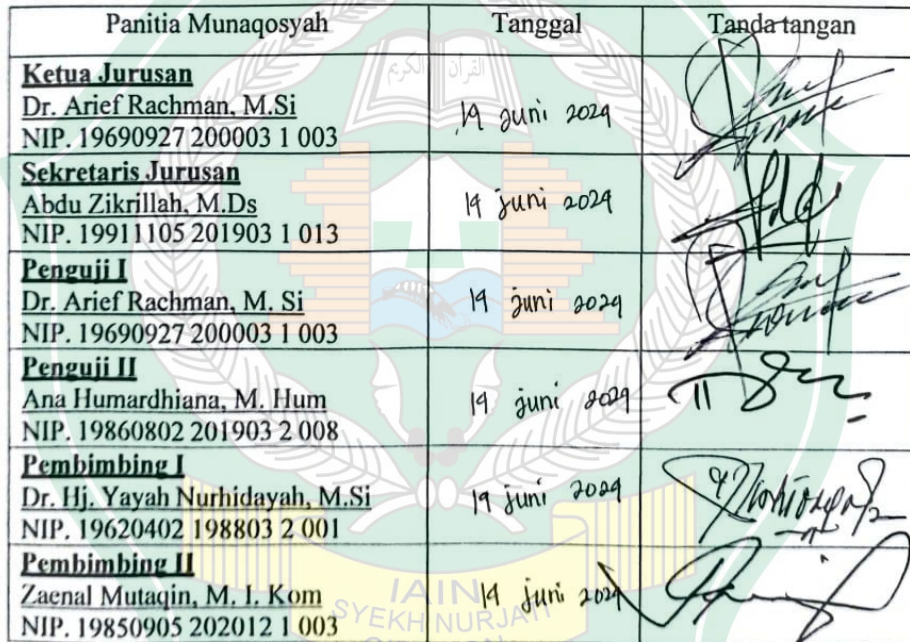 Panitia Munaqosyah Tanggal Tanda tangan
Ketua Jurusan
Dr. Arief Rachman, M.Si
NIP. 19690927 200003 1 003
19 Juni 2024
Sekretaris Jurusan
Abdu Zikrillah, M.Ds
NIP. 19911105 201903 1 013
19 Juni 2024
Penguji I
Dr. Arief Rachman, M. Si
NIP. 19690927 200003 1 003
19 Juni 2024
Penguji II
Ana Humardhiana, M. Hum
NIP. 19860802 201903 2 008
19 Juni 2024
Pembimbing I
Dr. Hj. Yayah Nurhidayah, M.Si
NIP. 19620402 198803 2 001
19 Juni 2024
Pembimbing II
Zaenal Mutaqin, M. I. Kom
NIP. 19850905 202012 1 003
19 Juni 2024
القرآن الكريم
IAIN
SYEKH NURJATI